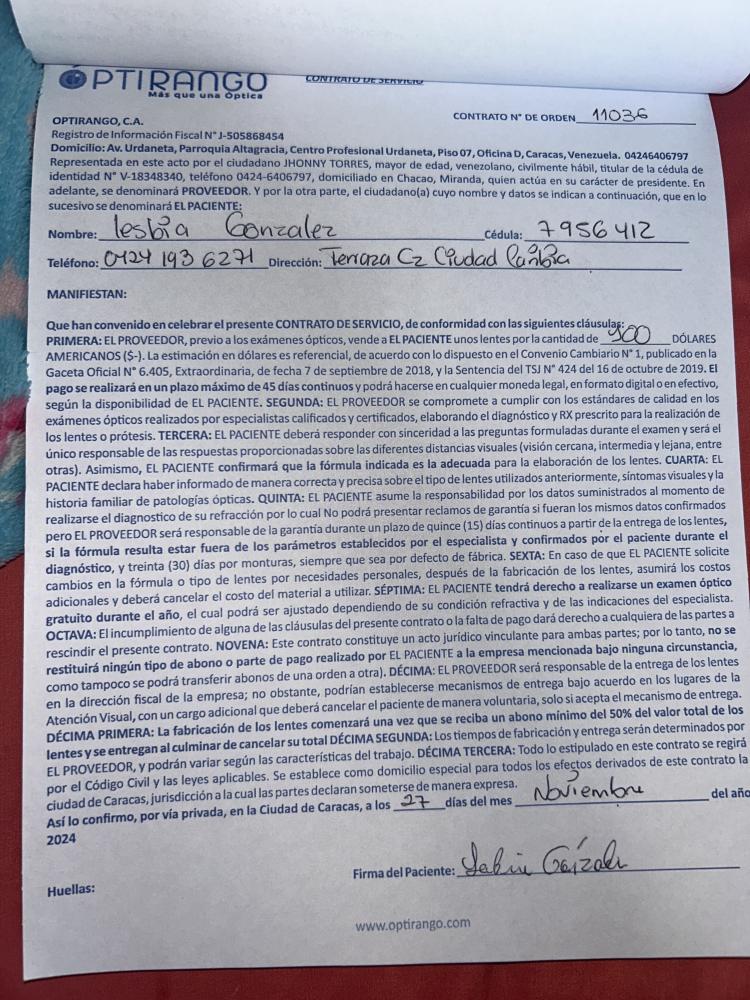 ÓPTIRANGO
Más que una Óptica
CONTRATO DE SERVICIO
CONTRATO N° DE ORDEN 11036
OPTIRANGO, C.A.
Registro de Información Fiscal N° J-505868454
Domicilio: Av. Urdaneta, Parroquia Altagracia, Centro Profesional Urdaneta, Piso 07, Oficina D, Caracas, Venezuela. 04246406797
Representada en este acto por el ciudadano JHONNY TORRES, mayor de edad, venezolano, civilmente hábil, titular de la cédula de
identidad N° V-18348340, teléfono 0424-6406797, domiciliado en Chacao, Miranda, quien actúa en su carácter de presidente. En
adelante, se denominará PROVEEDOR. Y por la otra parte, el ciudadano(a) cuyo nombre y datos se indican a continuación, que en lo
sucesivo se denominará EL PACIENTE:
Nombre: lesbia Gonzalez Cédula: 7956412
Teléfono: 0424 193 6271 Dirección: Terraza C2 Ciudad
MANIFIESTAN:
Que han convenido en celebrar el presente CONTRATO DE SERVICIO, de conformidad con las siguientes cláusulas:
PRIMERA: EL PROVEEDOR, previo a los exámenes ópticos, vende a EL PACIENTE unos lentes por la cantidad de 100 DÓLARES
AMERICANOS ($-). La estimación en dólares es referencial, de acuerdo con lo dispuesto en el Convenio Cambiario N° 1, publicado en la
Gaceta Oficial N° 6.405, Extraordinaria, de fecha 7 de septiembre de 2018, y la Sentencia del TSJ N° 424 del 16 de octubre de 2019. El
pago se realizará en un plazo máximo de 45 días continuos y podrá hacerse en cualquier moneda legal, en formato digital o en efectivo,
según la disponibilidad de EL PACIENTE. SEGUNDA: EL PROVEEDOR se compromete a cumplir con los estándares de calidad en los
exámenes ópticos realizados por especialistas calificados y certificados, elaborando el diagnóstico y RX prescrito para la realización de
los lentes o prótesis. TERCERA: EL PACIENTE deberá responder con sinceridad a las preguntas formuladas durante el examen y será el
único responsable de las respuestas proporcionadas sobre las diferentes distancias visuales (visión cercana, intermedia y lejana, entre
otras). Asimismo, EL PACIENTE confirmará que la fórmula indicada es la adecuada para la elaboración de los lentes. CUARTA: EL
PACIENTE declara haber informado de manera correcta y precisa sobre el tipo de lentes utilizados anteriormente, síntomas visuales y la
historia familiar de patologías ópticas. QUINTA: EL PACIENTE asume la responsabilidad por los datos suministrados al momento de
realizarse el diagnostico de su refracción por lo cual No podrá presentar reclamos de garantía si fueran los mismos datos confirmados
pero EL PROVEEDOR será responsable de la garantía durante un plazo de quince (15) días continuos a partir de la entrega de los lentes,
si la fórmula resulta estar fuera de los parámetros establecidos por el especialista y confirmados por el paciente durante el
diagnóstico, y treinta (30) días por monturas, siempre que sea por defecto de fábrica. SEXTA: En caso de que EL PACIENTE solicite
cambios en la fórmula o tipo de lentes por necesidades personales, después de la fabricación de los lentes, asumirá los costos
adicionales y deberá cancelar el costo del material a utilizar. SÉPTIMA: EL PACIENTE tendrá derecho a realizarse un examen óptico
gratuito durante el año, el cual podrá ser ajustado dependiendo de su condición refractiva y de las indicaciones del especialista.
OCTAVA: El incumplimiento de alguna de las cláusulas del presente contrato o la falta de pago dará derecho a cualquiera de las partes a
rescindir el presente contrato. NOVENA: Este contrato constituye un acto jurídico vinculante para ambas partes; por lo tanto, no se
restituirá ningún tipo de abono o parte de pago realizado por EL PACIENTE a la empresa mencionada bajo ninguna circunstancia,
como tampoco se podrá transferir abonos de una orden a otra). DÉCIMA: EL PROVEEDOR será responsable de la entrega de los lentes
en la dirección fiscal de la empresa; no obstante, podrían establecerse mecanismos de entrega bajo acuerdo en los lugares de la
Atención Visual, con un cargo adicional que deberá cancelar el paciente de manera voluntaria, solo si acepta el mecanismo de entrega.
DÉCIMA PRIMERA: La fabricación de los lentes comenzará una vez que se reciba un abono mínimo del 50% del valor total de los
lentes y se entregan al culminar de cancelar su total DÉCIMA SEGUNDA: Los tiempos de fabricación y entrega serán determinados por
EL PROVEEDOR, y podrán variar según las características del trabajo. DÉCIMA TERCERA: Todo lo estipulado en este contrato se regirá
por el Código Civil y las leyes aplicables. Se establece como domicilio especial para todos los efectos derivados de este contrato la
ciudad de Caracas, jurisdicción a la cual las partes declaran someterse de manera expresa.
Así lo confirmo, por vía privada, en la Ciudad de Caracas, a los 27 días del mes Noviembre del año
2024
Firma del Paciente:
Huellas:
www.optirango.com